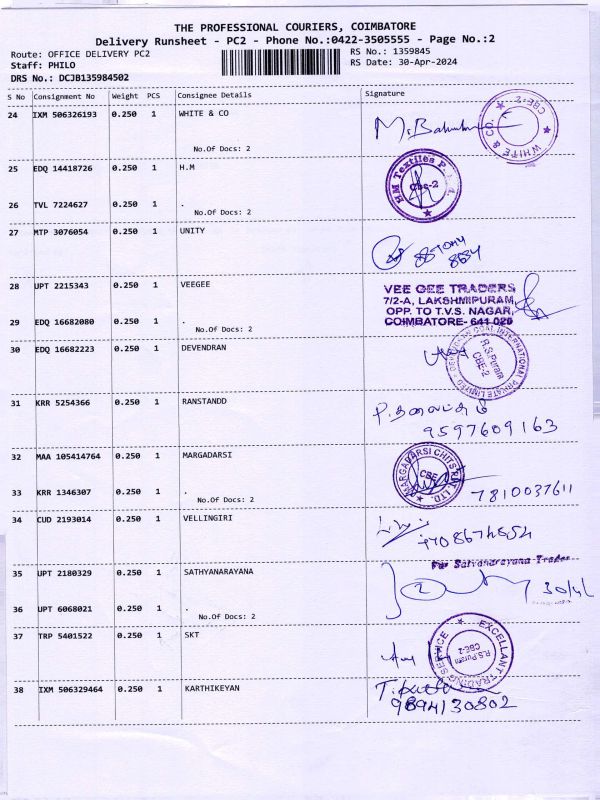 THE PROFESSIONAL COURIERS, COIMBATORE
Delivery Runsheet - PC2 - Phone No.:0422-3505555 - Page No.:2
Route: OFFICE DELIVERY PC2
RS No.: 1359845
Staff: PHILO
RS Date: 30-Apr-2024
DRS No.: DCJB135984502
S No Consignment No Weight PCS Consignee Details Signature
24 IXM 506326193 0.250 1 WHITE & CO
No.Of Docs: 2
WHITE & CO. CBE-2
25 EDQ 14418726 0.250 1 H.M
HM Textiles CBE-2
26 TVL 7224627 0.250 1 .
No.Of Docs: 2
27 MTP 3076054 0.250 1 UNITY
28 UPT 2215343 0.250 1 VEEGEE
VEE GEE TRADERS
7/2-A, LAKSHMIPURAM,
OPP. TO T.V.S. NAGAR,
COIMBATORE- 641 020
29 EDQ 16682080 0.250 1 .
No.Of Docs: 2
30 EDQ 16682223 0.250 1 DEVENDRAN
DEVENDRAN COAL INTERNATIONAL PRIVATE LIMITED
R.S.Puram
CBE-2
31 KRR 5254366 0.250 1 RANSTANDD
9597609163
32 MAA 105414764 0.250 1 MARGADARSI
MARGADARSI CHITS PVT. LTD.
CBE
33 KRR 1346307 0.250 1 .
No.Of Docs: 2
7810037611
34 CUD 2193014 0.250 1 VELLINGIRI
For Satyanarayana Trader
35 UPT 2180329 0.250 1 SATHYANARAYANA
2 30/4/
36 UPT 6068021 0.250 1 .
No.Of Docs: 2
37 TRP 5401522 0.250 1 SKT
EXCELLANT TRADING SERVICE
R.S.Puram
CBE-2
38 IXM 506329464 0.250 1 KARTHIKEYAN
9894130802